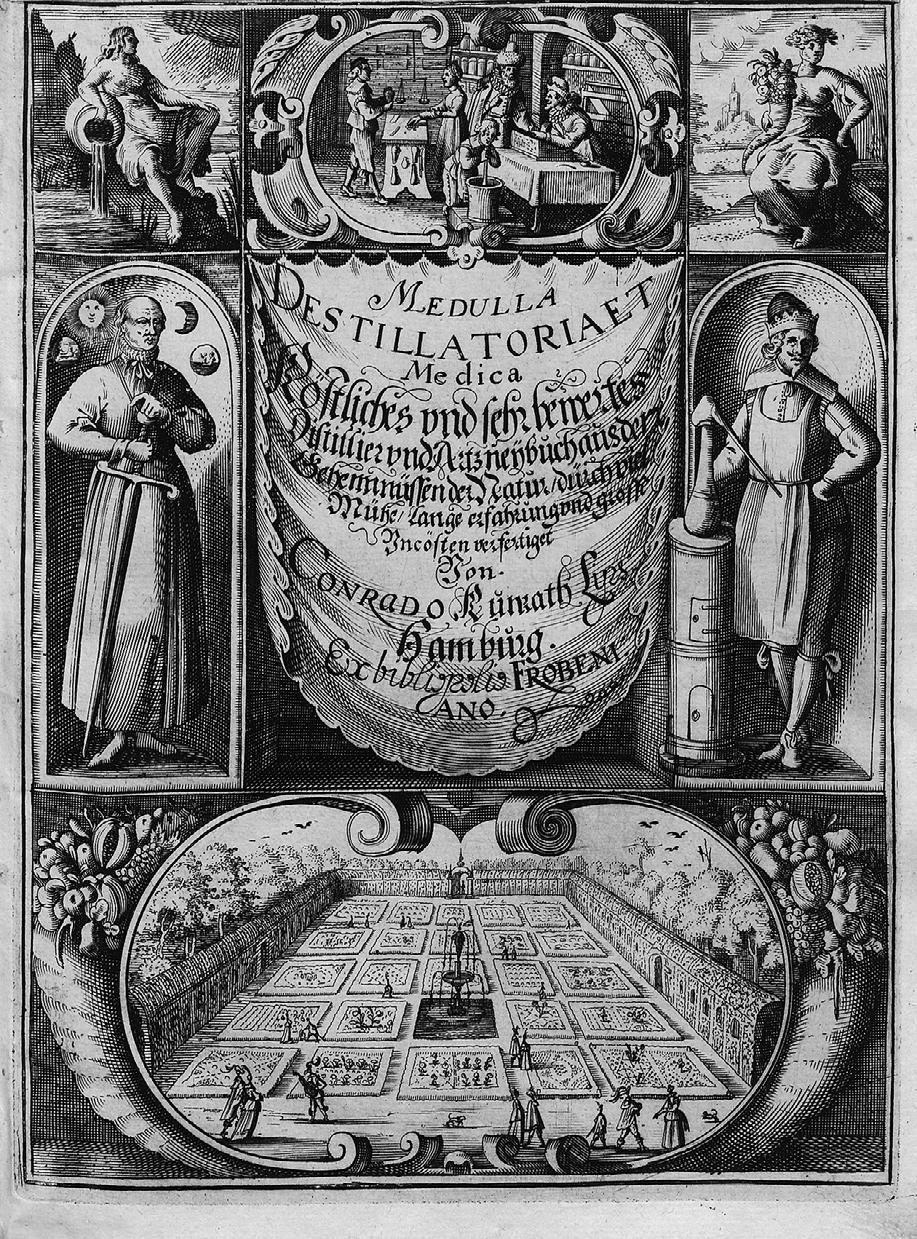 MEDULLA
DESTILLATORIA ET
Medica
Köstliches vnd sehr bewertes
Distillier vnd Artzneybuch aus der
Geheimnüssen der Natur / dürch viel
Mühe / lange erfahrung vnd grosse
Vncösten verfertiget
Von.
CONRADO Kunrath Lips.
Hamburg.
Ex bibliopolio FROBENI
ANO.